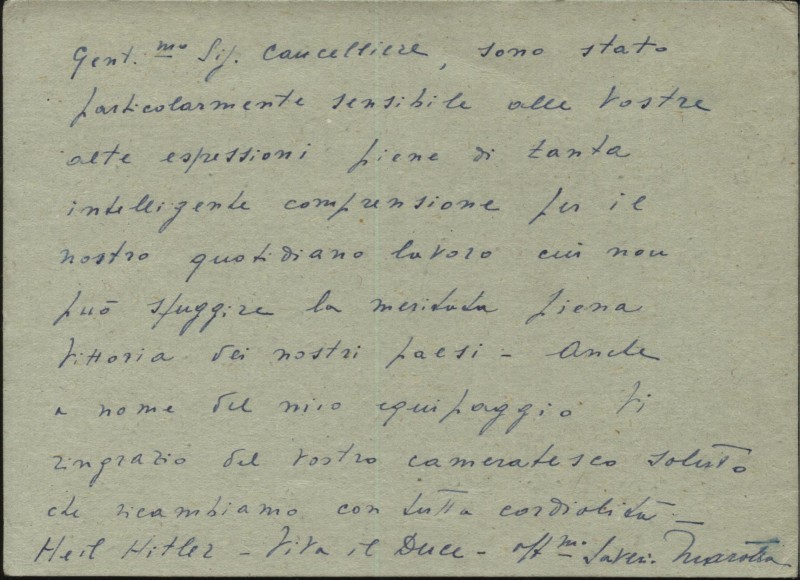 Gent.mo Sig. Cancelliere, sono stato
particolarmente sensibile alle Vostre
alte espressioni piene di tanta
intelligente comprensione per il
nostro quotidiano lavoro cui non
può sfuggire la meritata piena
Vittoria dei nostri paesi - Anche
a nome del mio equipaggio Vi
ringrazio del Vostro cameratesco saluto
che ricambiamo con tutta cordialità -
Heil Hitler - Viva il Duce - aff.mo Marotta